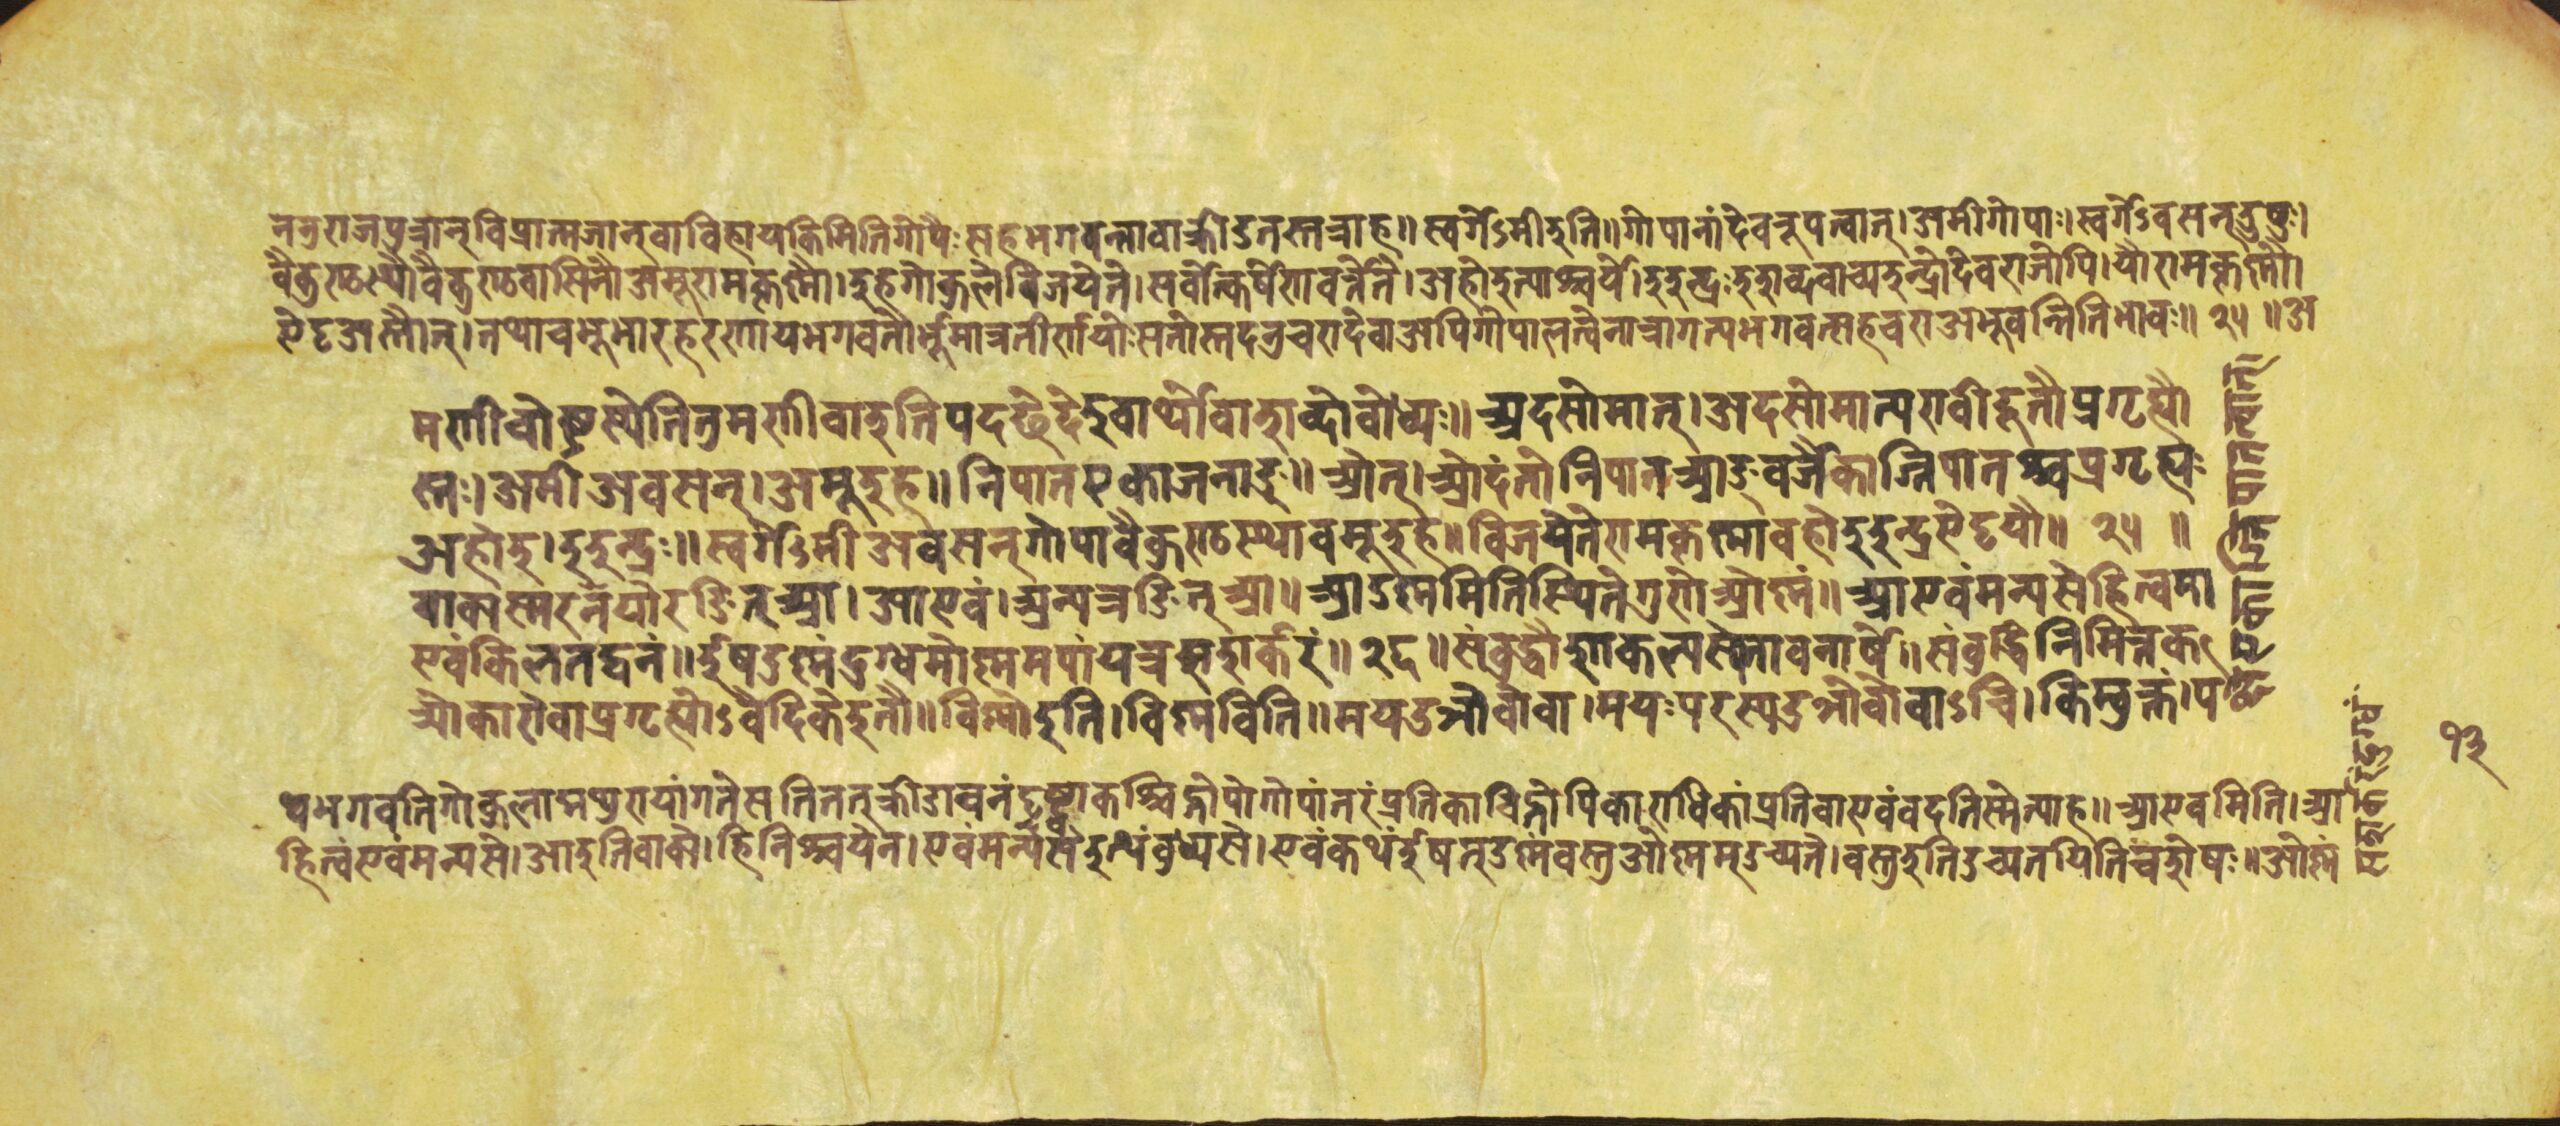 ननुराजपुत्रान् विप्रात्मजान् वा विहाय किमिति गोपैः सह भगवन्तावाक्रीडतस्तत्राह॥ स्वर्गेऽमी इति॥ गोपानां देवरूपत्वात्। अमी गोपाः। स्वर्गेऽवसन् ऊषुः।
वैकुण्ठस्थौ वैकुण्ठवासिनौ अमू रामकृष्णौ। इह गोकुले विजयेते। सर्वोत्कर्षेण वर्तेते। अहो इत्याश्चर्ये। इ इन्द्रः इशब्दवाच्य इन्द्रो देवराजोपि। यौ रामकृष्णौ।
एेट्ट अस्तौत्। तथा च भूभारहरणाय भगवतोर्भूमावतीर्णयोः सतोस्तदनुचरा देवा अपि गोपालत्वेनात्रागत्य भगवत्सहचरा अभूवन्निति भावः॥ २५ ॥ अ
मणीवोष्ट्रस्येति तु मणी वा इति पदछेदे इवार्थे वाशब्दो बोध्यः॥ अदसो मात्। अदसो मात्परावीदूतौ प्रगृह्यौ
स्तः। अमी अवसन्। अमू इह॥ निपात एकाजनाङ्॥ ओत्। ओदंतो निपात आङ्वर्जैकाज्निपातश्च प्रगृह्यः
अहो इ। इ इन्द्रः॥ स्वर्गेऽमी अवसन् गोपा वैकुण्ठस्थावमू इह॥ विजयेते रामकृष्णावहो इ इन्द्र एेट्ट यौ॥ २५ ॥
वाक्यस्मरणयोरङित् आ। आ एवं। अन्यत्र ङित् आ॥ आ उष्णमिति स्थिते गुणे ओष्णं॥ आ एवं मन्यसे हि त्वमा
एवं किल तद्वनं॥ ईषदुष्णं दुग्धमोष्णमपां यत्र मुदाकरं॥ २६ ॥ संबुद्धौ शाकल्यस्येतावनार्षे॥ संबुद्धिनिमित्तक
ओकारो वा प्रगृह्योऽवैदिके इतौ॥ विष्णो इति। विष्णविति॥ मय उञो वो वा। मयः परस्य उञो वो वाऽचि। किम्वुक्तं। प
थ भगवति गोकुलान्मथुरायां गते सति तत् क्रीडावनं दृष्ट्वा कश्चिद्गोपो गोपांतरं प्रति काचिद्गोपिका राधिकां प्रति वा एवं वदति स्मेत्याह॥ आ एवमिति। आ
हि त्वं एवं मन्यसे। आ इति वाक्ये। हि निश्चयेन। एवं मन्यसे इत्थं बुध्यसे। एवं कथं ईषत् उष्णं वस्तु ओष्णम् उच्यते। वस्तु इति उच्यत यिति च शेषः॥ ओष्णं
१३